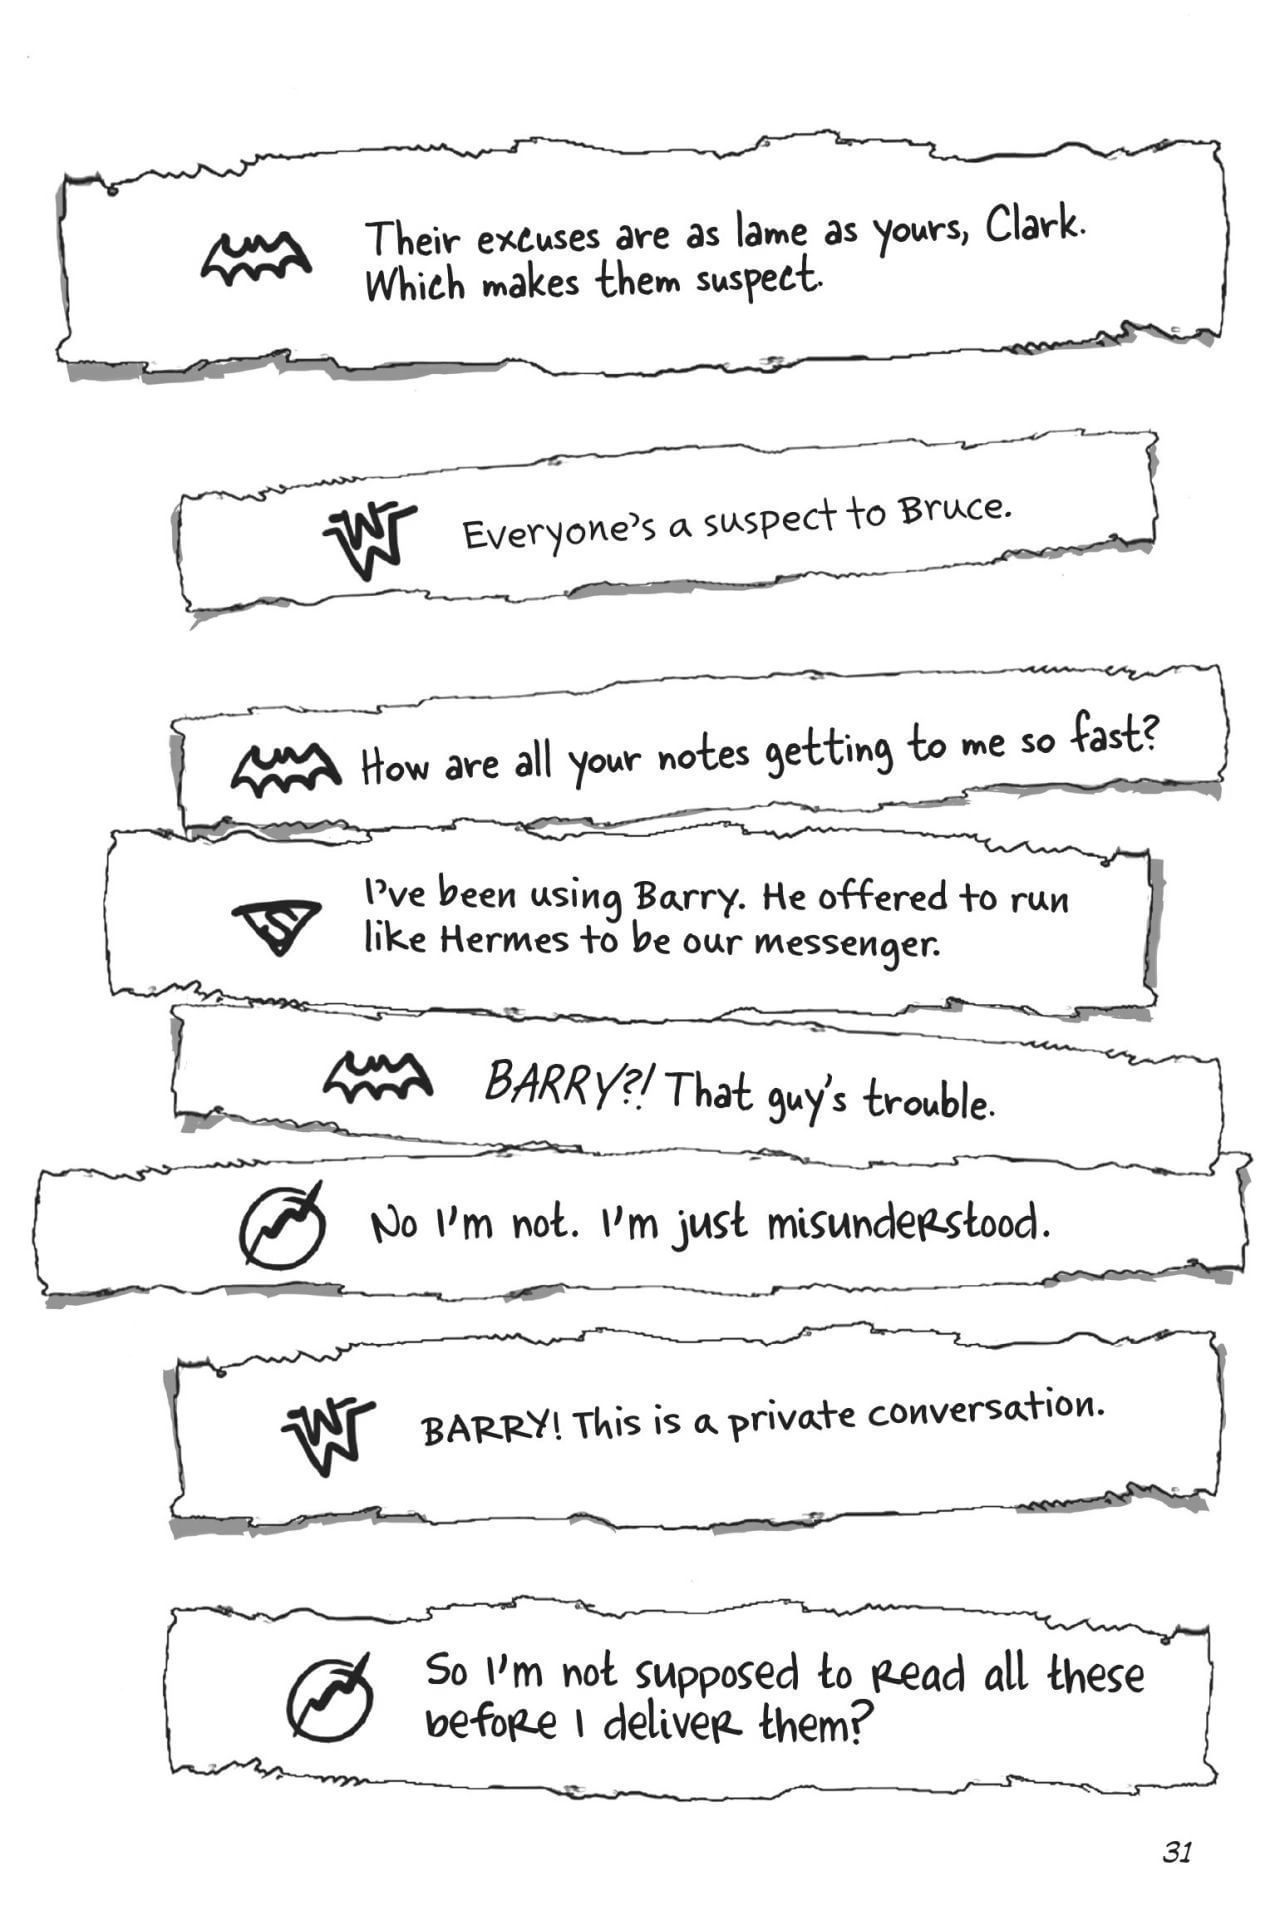 Their excuses are as lame as yours, Clark.
Which makes them suspect.
Everyone's a suspect to Bruce.
How are all your notes getting to me so fast?
I've been using Barry. He offered to run
like Hermes to be our messenger.
BARRY?! That guy's trouble.
No I'm not. I'm just misunderstood.
BARRY! This is a private conversation.
So I'm not supposed to read all these
before I deliver them?
31